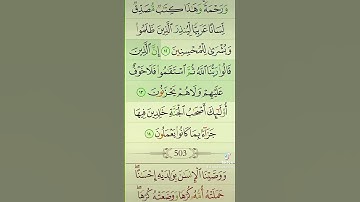 وَرَحْمَةً وَهَٰذَا كِتَٰبٌ مُّصَدِّقٌ
لِّسَانًا عَرَبِيًّا لِّيُنذِرَ الَّذِينَ ظَلَمُوا
وَبُشْرَىٰ لِلْمُحْسِنِينَ ١٢ إِنَّ الَّذِينَ
قَالُوا رَبُّنَا اللَّهُ ثُمَّ اسْتَقَٰمُوا فَلَا خَوْفٌ
عَلَيْهِمْ وَلَا هُمْ يَحْزَنُونَ ١٣
أُولَٰئِكَ أَصْحَٰبُ الْجَنَّةِ خَٰلِدِينَ فِيهَا
جَزَاءً بِمَا كَانُوا يَعْمَلُونَ ١٤
503
وَوَصَّيْنَا الْإِنسَٰنَ بِوَٰلِدَيْهِ إِحْسَٰنًا
حَمَلَتْهُ أُمُّهُ كُرْهًا وَوَضَعَتْهُ كُرْهًا